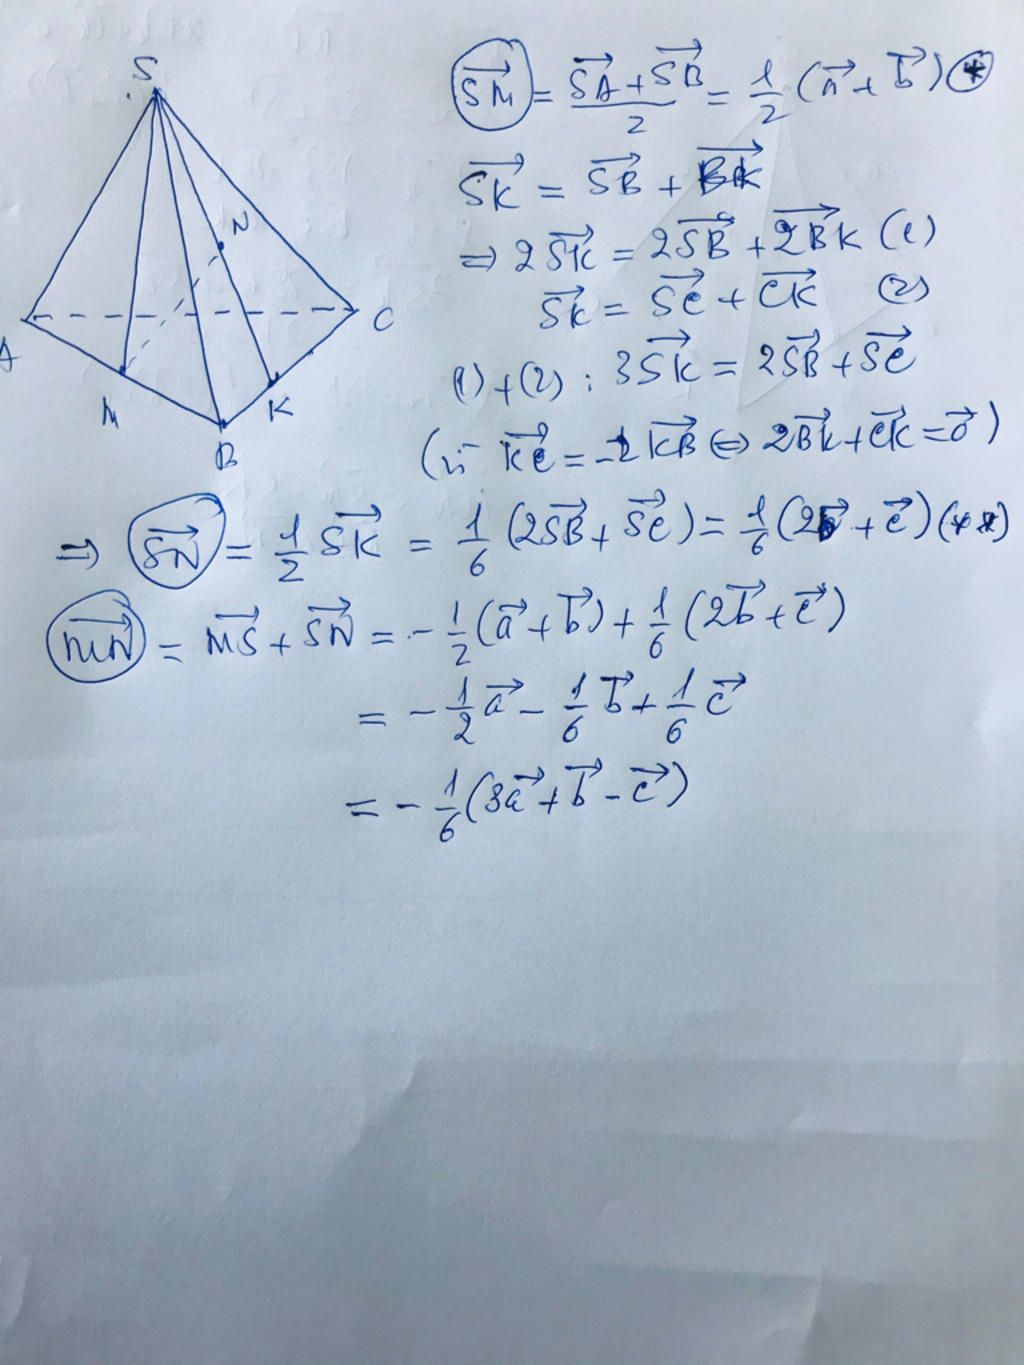 S
N
A
C
M
K
B
$\overrightarrow{SM} = \frac{\overrightarrow{SA} + \overrightarrow{SB}}{2} = \frac{1}{2}(\overrightarrow{a} + \overrightarrow{b})$ (*)
$\overrightarrow{SK} = \overrightarrow{SB} + \overrightarrow{BK}$
$\Rightarrow 2\overrightarrow{SK} = 2\overrightarrow{SB} + 2\overrightarrow{BK}$ (1)
$\overrightarrow{SK} = \overrightarrow{SC} + \overrightarrow{CK}$ (2)
(1)+(2): $3\overrightarrow{SK} = 2\overrightarrow{SB} + \overrightarrow{SC}$
(vì $\overrightarrow{KC} = -2\overrightarrow{KB} \Leftrightarrow 2\overrightarrow{BK} + \overrightarrow{CK} = \overrightarrow{0}$)
$\Rightarrow \overrightarrow{SN} = \frac{1}{2}\overrightarrow{SK} = \frac{1}{6}(2\overrightarrow{SB} + \overrightarrow{SC}) = \frac{1}{6}(2\overrightarrow{b} + \overrightarrow{c})$ (**)
$\overrightarrow{MN} = \overrightarrow{MS} + \overrightarrow{SN} = -\frac{1}{2}(\overrightarrow{a} + \overrightarrow{b}) + \frac{1}{6}(2\overrightarrow{b} + \overrightarrow{c})$
$= -\frac{1}{2}\overrightarrow{a} - \frac{1}{6}\overrightarrow{b} + \frac{1}{6}\overrightarrow{c}$
$= -\frac{1}{6}(3\overrightarrow{a} + \overrightarrow{b} - \overrightarrow{c})$